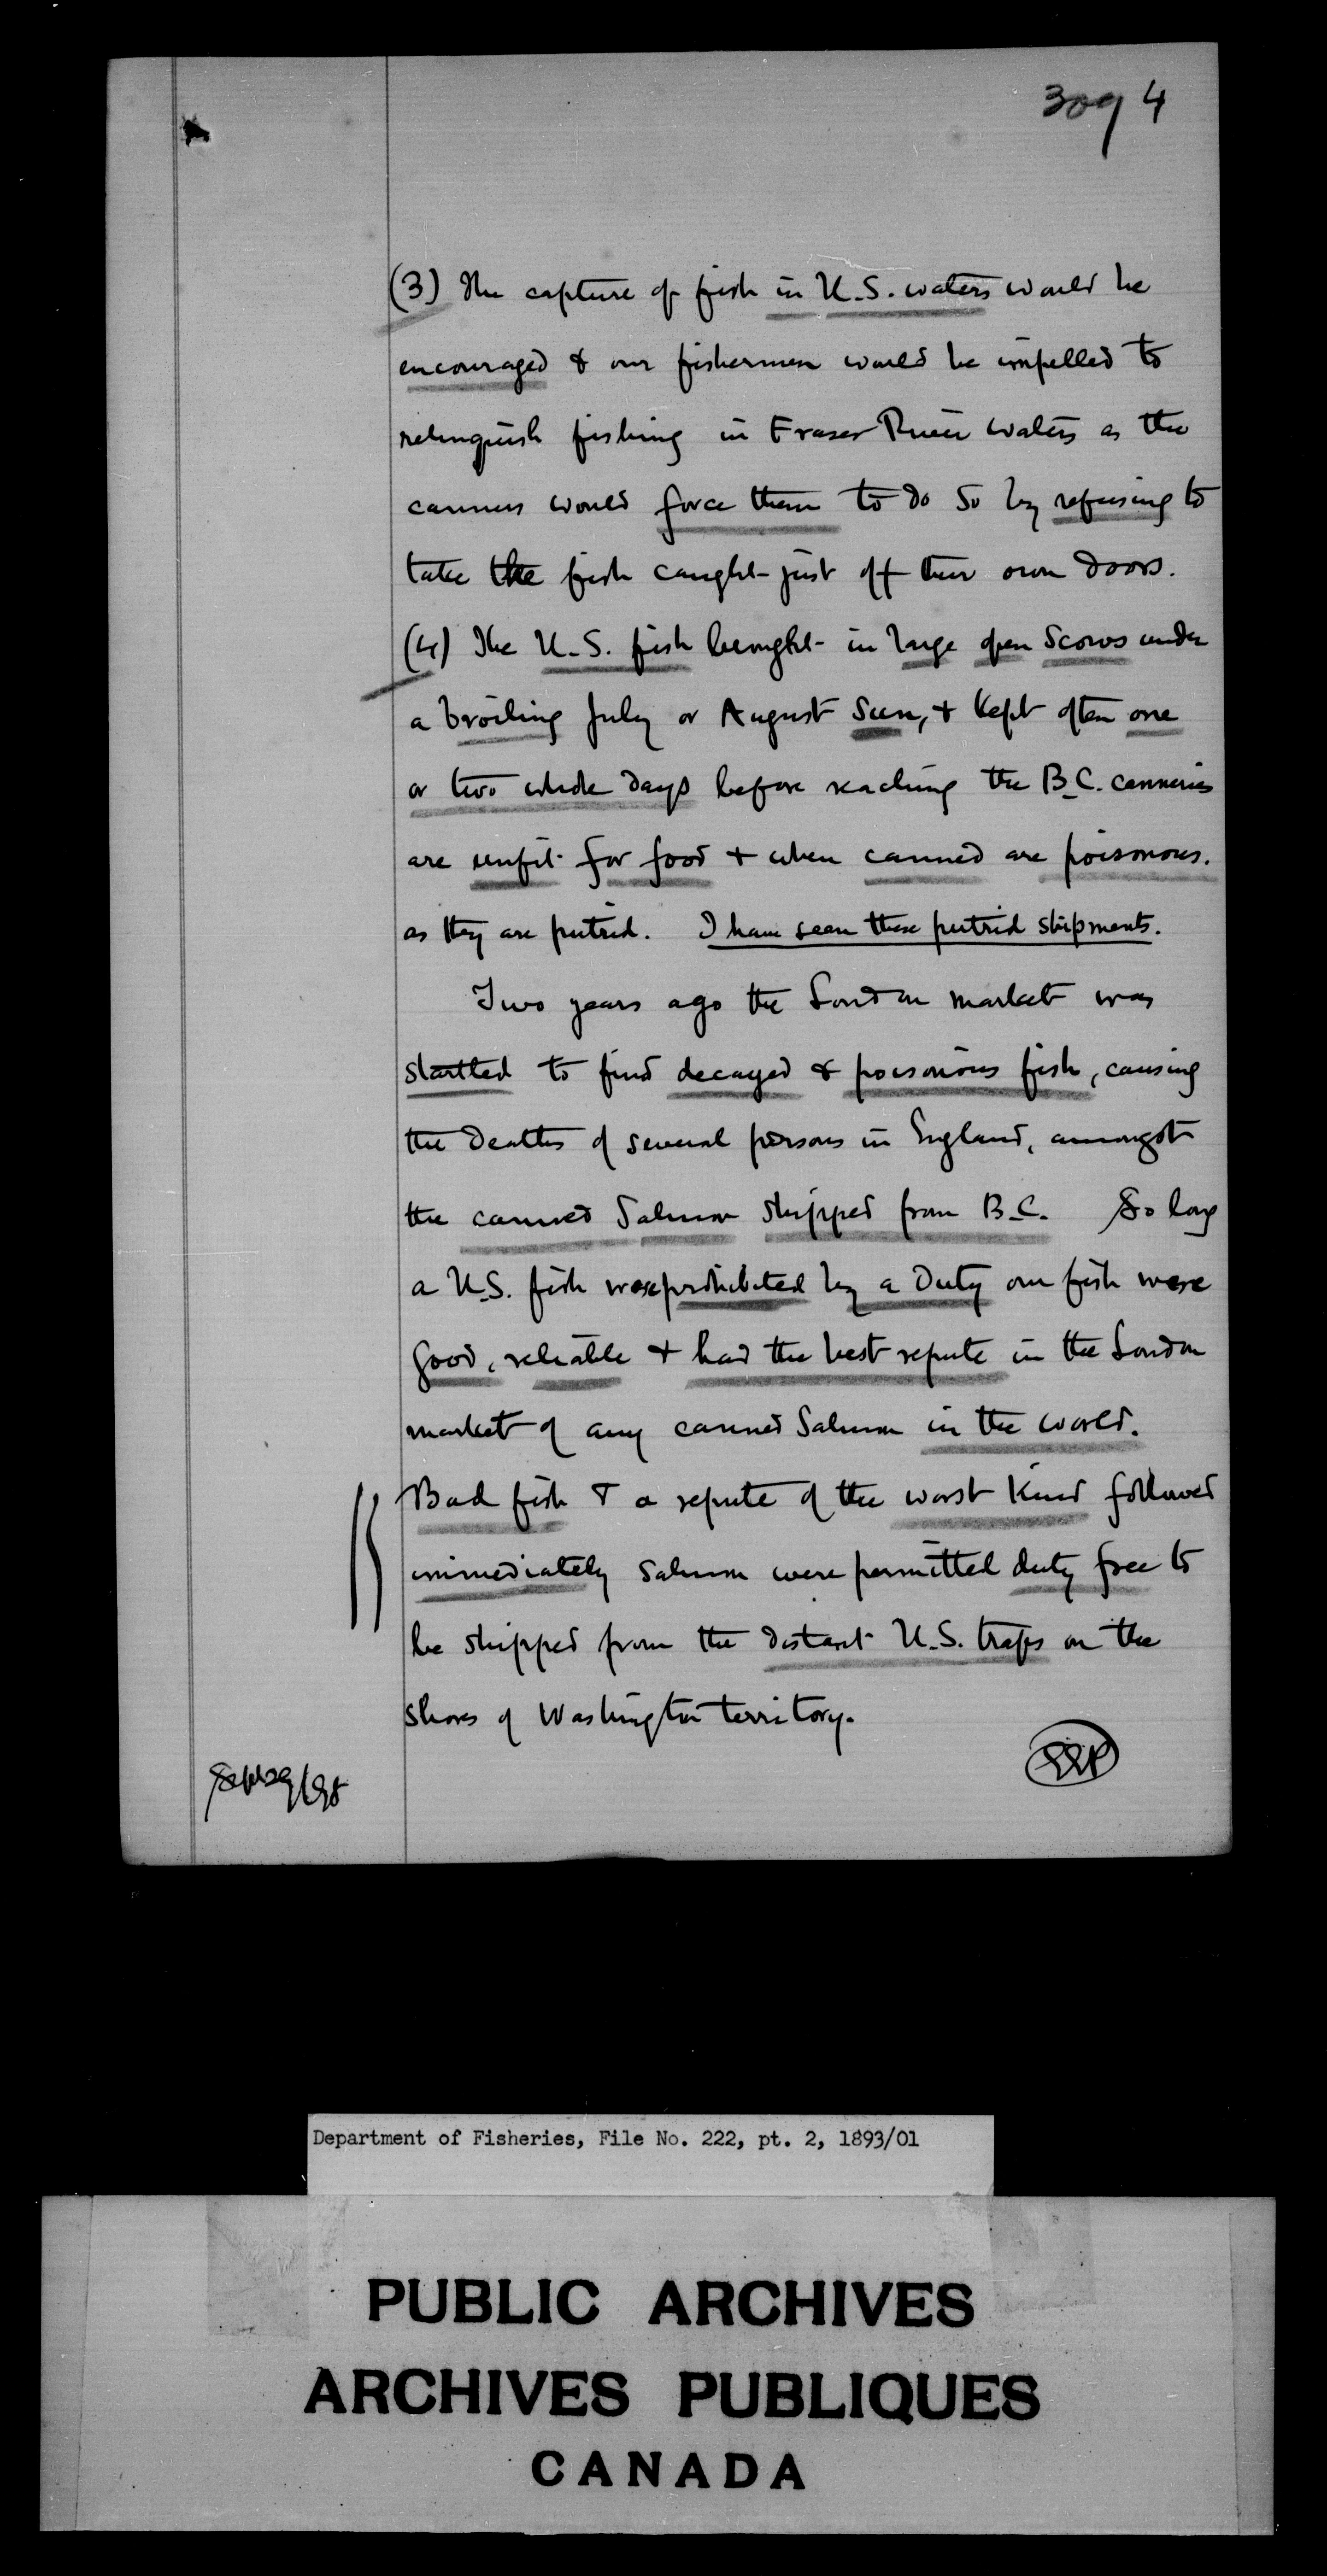 309 4
(3) The capture of fish in U.S. waters would be
encouraged & our fishermen would be impelled to
relinquish fishing in Fraser River waters as the
canners would force them to do so by refusing to
take the fish caught just off their own doors.
(4) The U.S. fish brought in large open scows under
a broiling July or August sun, & kept often one
or two whole days before reaching the B.C. canneries
are unfit for food & when canned are poisonous.
as they are putrid. I have seen these putrid shipments.
Two years ago the London market was
startled to find decayed & poisonous fish, causing
the deaths of several persons in England, amongst
the canned Salmon shipped from B.C. So long
a U.S. fish were prohibited by a Duty our fish were
good, reliable & had the best repute in the London
market of any canned Salmon in the world.
Bad fish & a repute of the worst kind followed
immediately salmon were permitted duty free to
be shipped from the distant U.S. traps on the
shores of Washington territory.
Sept 29/98
Department of Fisheries, File No. 222, pt. 2, 1893/01
PUBLIC ARCHIVES
ARCHIVES PUBLIQUES
CANADA